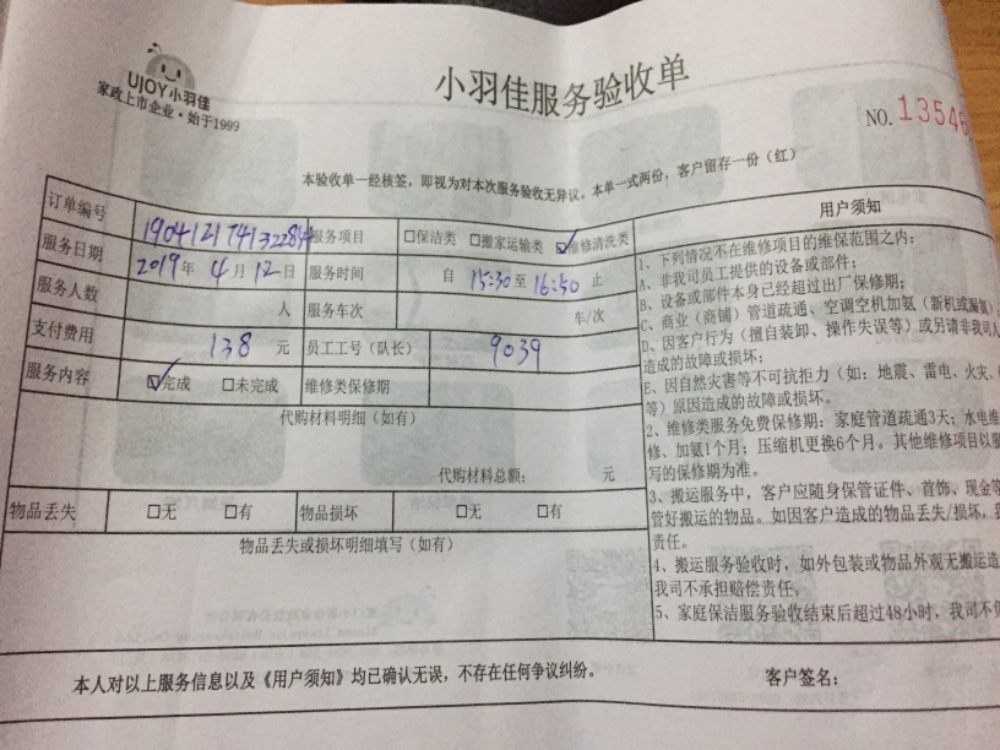 UJOY小羽佳
家政上市企业·始于1999
小羽佳服务验收单
NO. 13546
本验收单一经核签，即视为对本次服务验收无异议。本单一式两份，客户留存一份（红）
订单编号 服务项目 □保洁类 □搬家运输类 ☑维修清洗类
服务日期 2019年 4月 12日 服务时间 自 15:30 至 16:50 止
服务人数 人 服务车次 车/次
支付费用 138 元 员工工号（队长） 9039
服务内容 ☑完成 □未完成 维修类保修期
代购材料明细（如有）
代购材料总额： 元
物品丢失 □无 □有 物品损坏 □无 □有
物品丢失或损坏明细填写（如有）
用户须知
1、下列情况不在维修项目的维保范围之内：
A、非我司员工提供的设备或部件；
B、设备或部件本身已经超过出厂保修期；
C、商业（商铺）管道疏通、空调空机加氨（新机或漏氨）
D、因客户行为（擅自装卸、操作失误等）或另请非我司
造成的故障或损坏；
E、因自然灾害等不可抗拒力（如：地震、雷电、火灾、
等）原因造成的故障或损坏。
2、维修类服务免费保修期：家庭管道疏通3天；水电维
修、加氨1个月；压缩机更换6个月。其他维修项目以
写的保修期为准。
3、搬运服务中，客户应随身保管证件、首饰、现金等
管好搬运的物品。如因客户造成的物品丢失/损坏，
责任。
4、搬运服务验收时，如外包装或物品外观无搬运造
我司不承担赔偿责任。
5、家庭保洁服务验收结束后超过48小时，我司不
本人对以上服务信息以及《用户须知》均已确认无误，不存在任何争议纠纷。 客户签名：